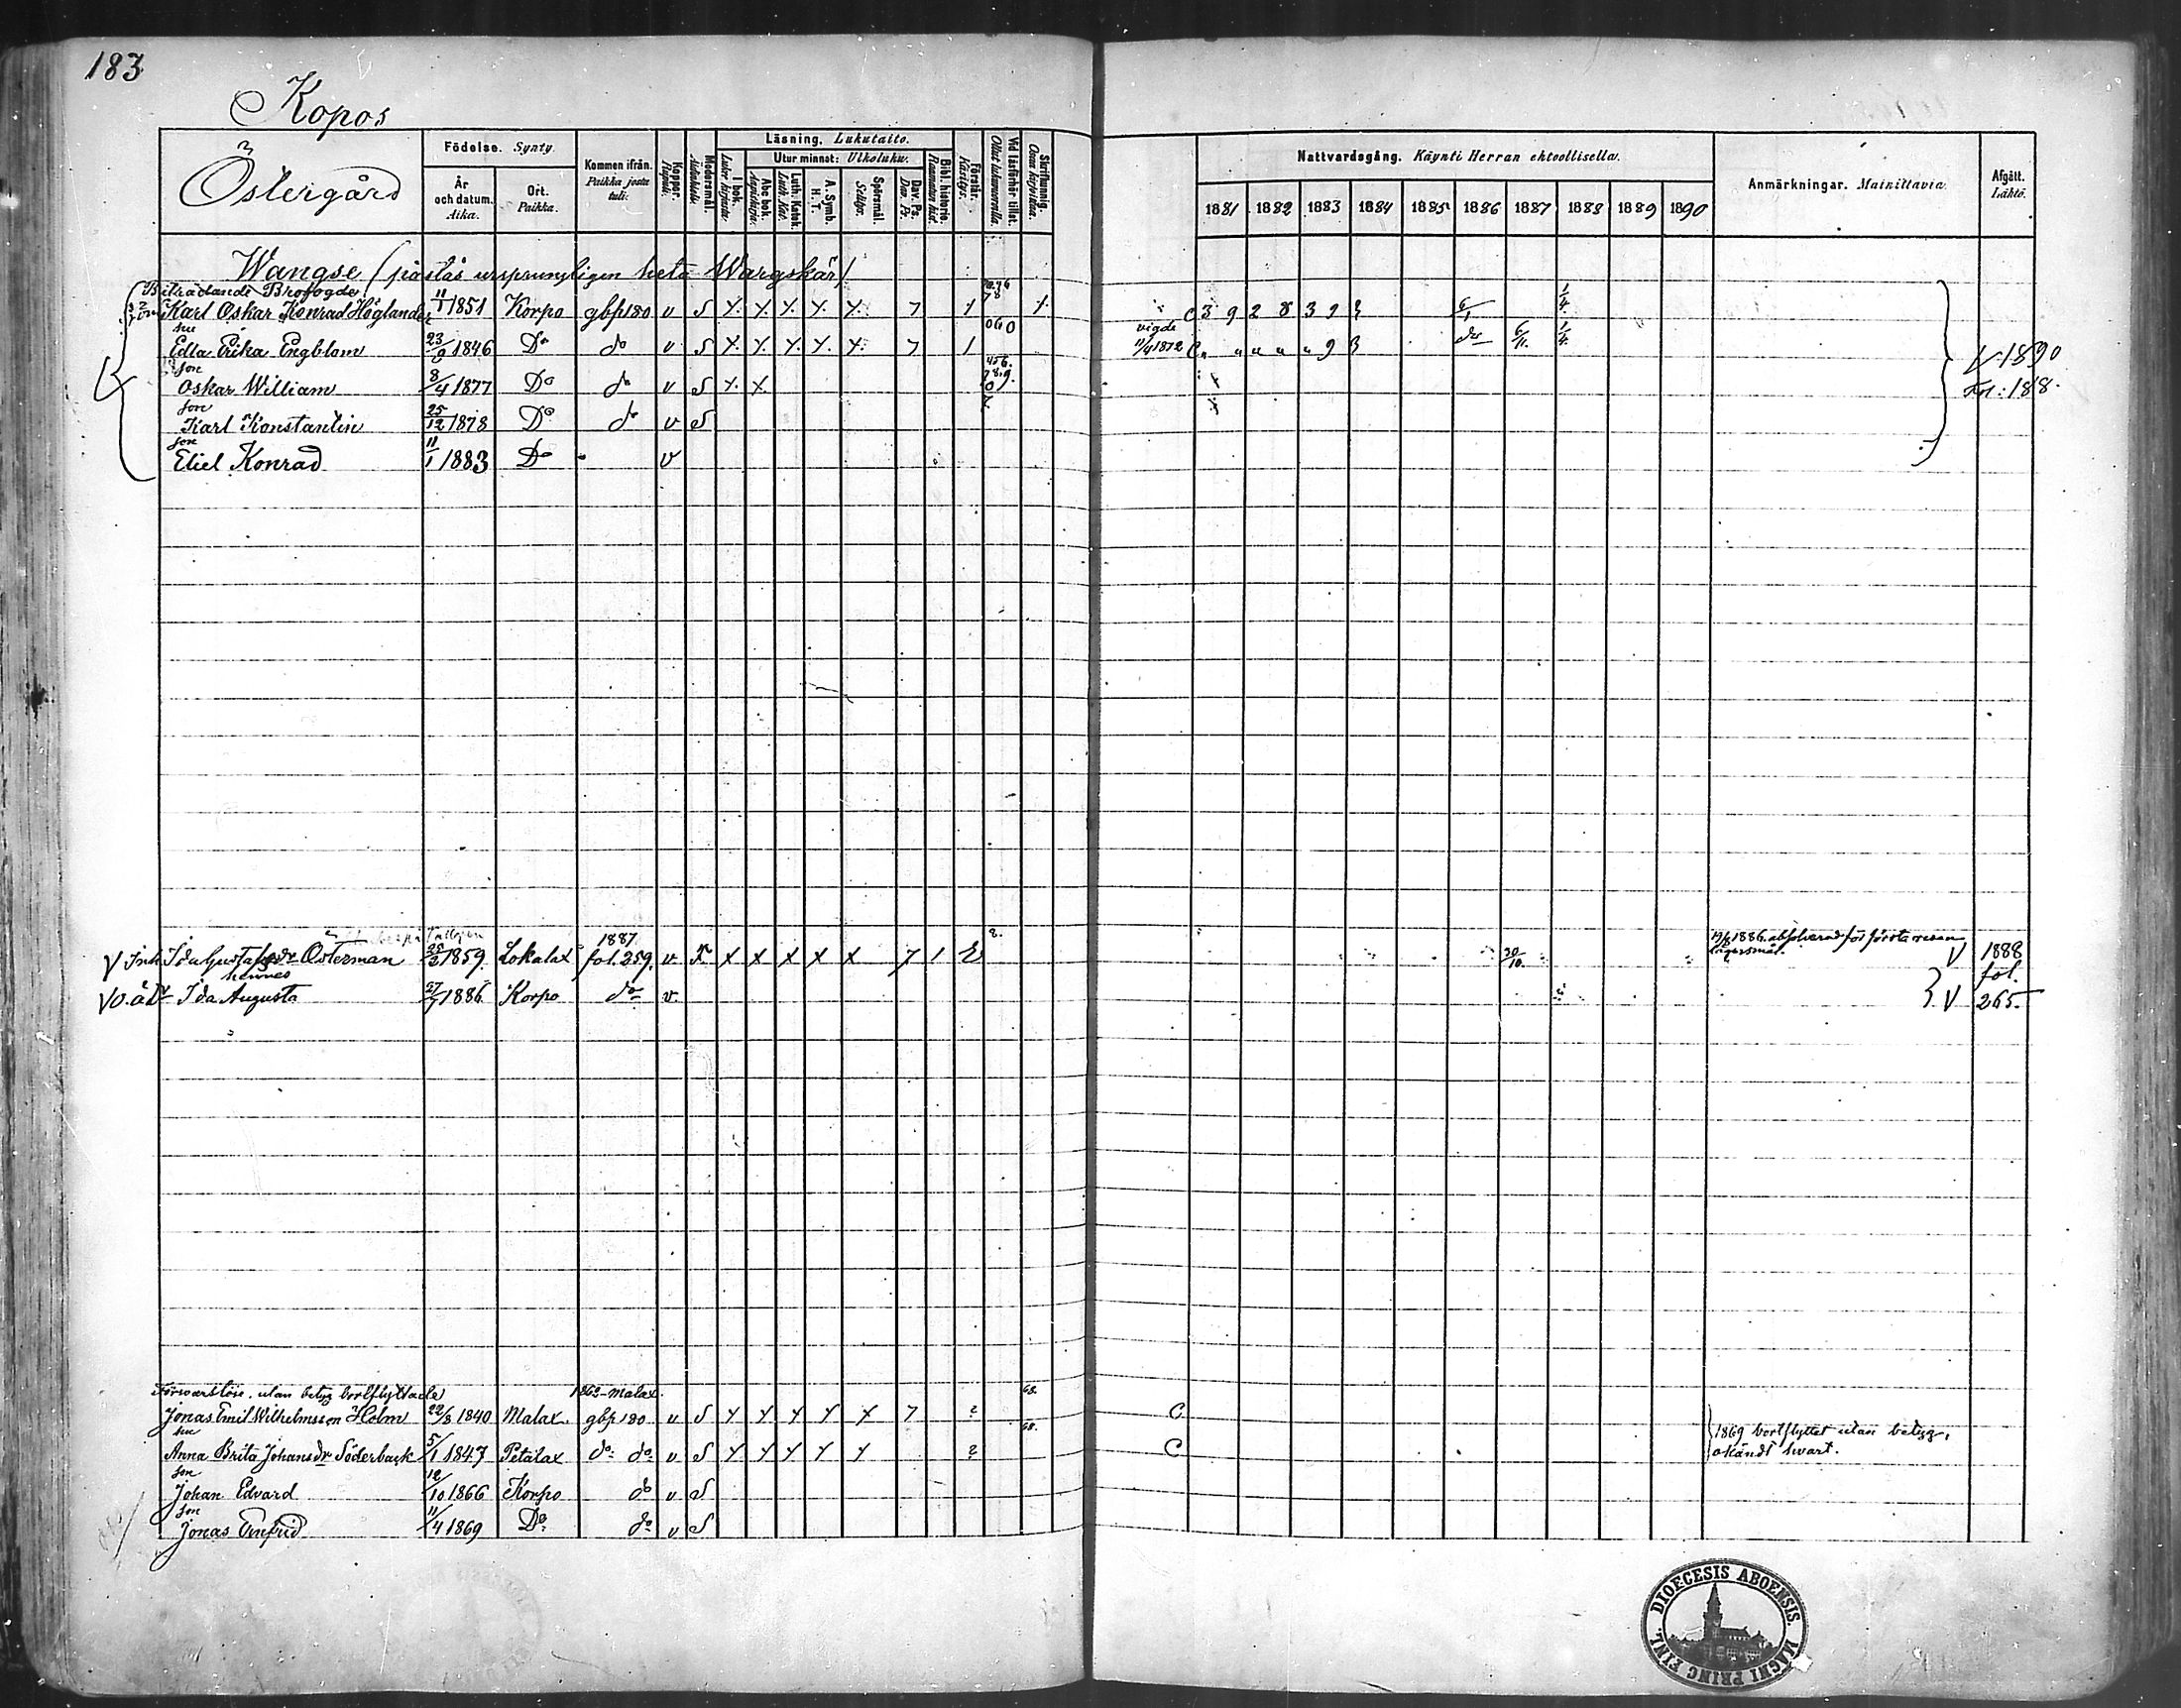 183
Kopos
Östergård
Födelse. Synty.
År och datum. Aika.
Ort. Paikka.
Kommen ifrån. Paikka josta tuli.
Koppor. Rupuli.
Modersmål. Äidinkieli.
Läsning. Lukutaito.
I bok. Luku kirjasta.
Utur minnet: Ulkoluku.
Abc bok. Aapiskirja.
Luth. Katek. Luth. Kat.
A. Symb. H. T.
Spörsmål. Selitys.
Dav. Ps. Dav. Ps.
Bibl. historie. Raamatun hist.
Förstår. Käsitys.
Vid läsförhör tillst. Ollut lukuvuorolla.
Skrifkunnig. Osaa kirjoittaa.
Nattvardsgång. Käynti Herran ehtoollisella.
1881 1882 1883 1884 1885 1886 1887 1888 1889 1890
Anmärkningar. Mainittavia.
Afgått. Lähtö.
Wangse (påstås ursprungligen heta Wargskär)
Biträdande Brofogde
Karl Oskar Konrad Höglander 11/1 1851 Korpo gbp 180 v S 7 1
hu
Edla Erika Engblom 23/9 1846 Do do v S 7 1 vigde 11/4 1872
son
Oskar William 8/4 1877 Do do v S
V. 1890
Fol: 188.
son
Karl Konstantin 25/12 1878 Do do v S
son
Eliel Konrad 11/1 1883 Do v
1887
Inh Ida Gustafsdr Österman 1859 Lokalax fol. 259. v 7 1 20/10 1886 absolverad för första resan lägersmål. V 1888
hennes
V o. ä. Dr Ida Augusta 27/7 1886 Korpo do v. } V fol. 265.
Förswarslöse, utan betyg bortflyttade
1862 - Malax.
Jonas Emil Wilhelmsson Holm 22/8 1840 Malax. gbp 180 v S 7 ? 68. C
hu
Anna Brita Johansdr Söderback 5/1 1847 Petalax do do v S ? 68. C
1869 bortflyttet utan betyg,
okändt hvart.
son
Johan Edvard 12/10 1866 Korpo do v S
son
Jonas Enfrid 11/4 1869 Do do v S
DIOECESIS ABOENSIS. MAGNI PRINC FINL.